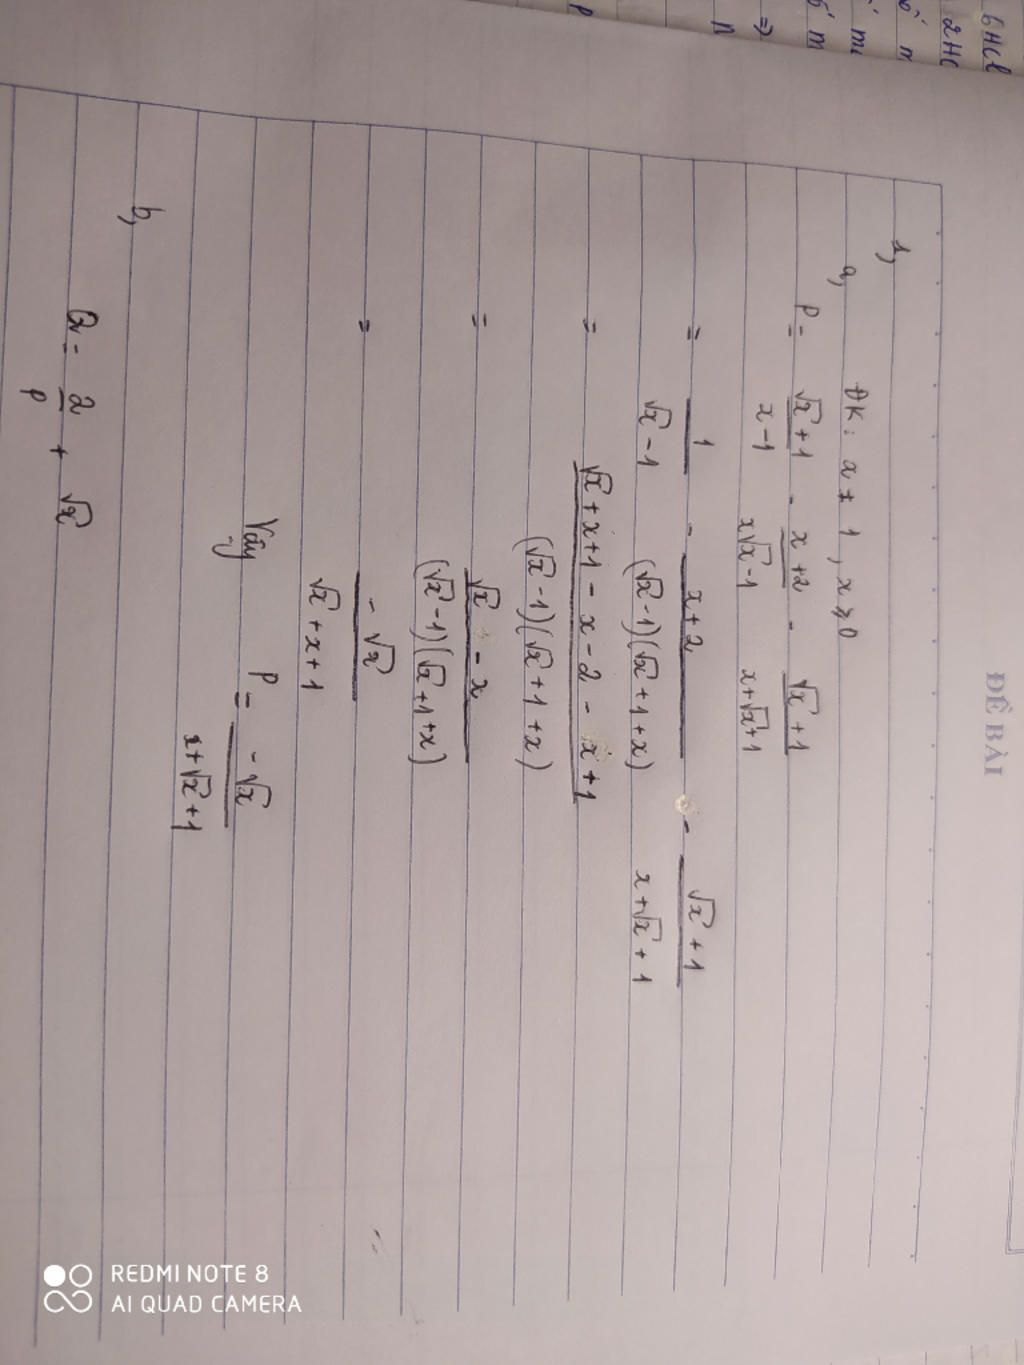 ĐỀ BÀI
1,
a, ĐK: x ≠ 1, x ≥ 0
P = (√x + 1)/(x - 1) - (x + 2)/(x√x - 1) - (√x + 1)/(x + √x + 1)
= 1/(√x - 1) - (x + 2)/((√x - 1)(√x + 1 + x)) - (√x + 1)/(x + √x + 1)
= (√x + x + 1 - x - 2 - x + 1)/((√x - 1)(√x + 1 + x))
= (√x - x)/((√x - 1)(√x + 1 + x))
= (-√x)/(√x + x + 1)
Vậy P = (-√x)/(x + √x + 1)
b,
Q = 2/P + √x
6HCl
2HC
REDMI NOTE 8
AI QUAD CAMERA